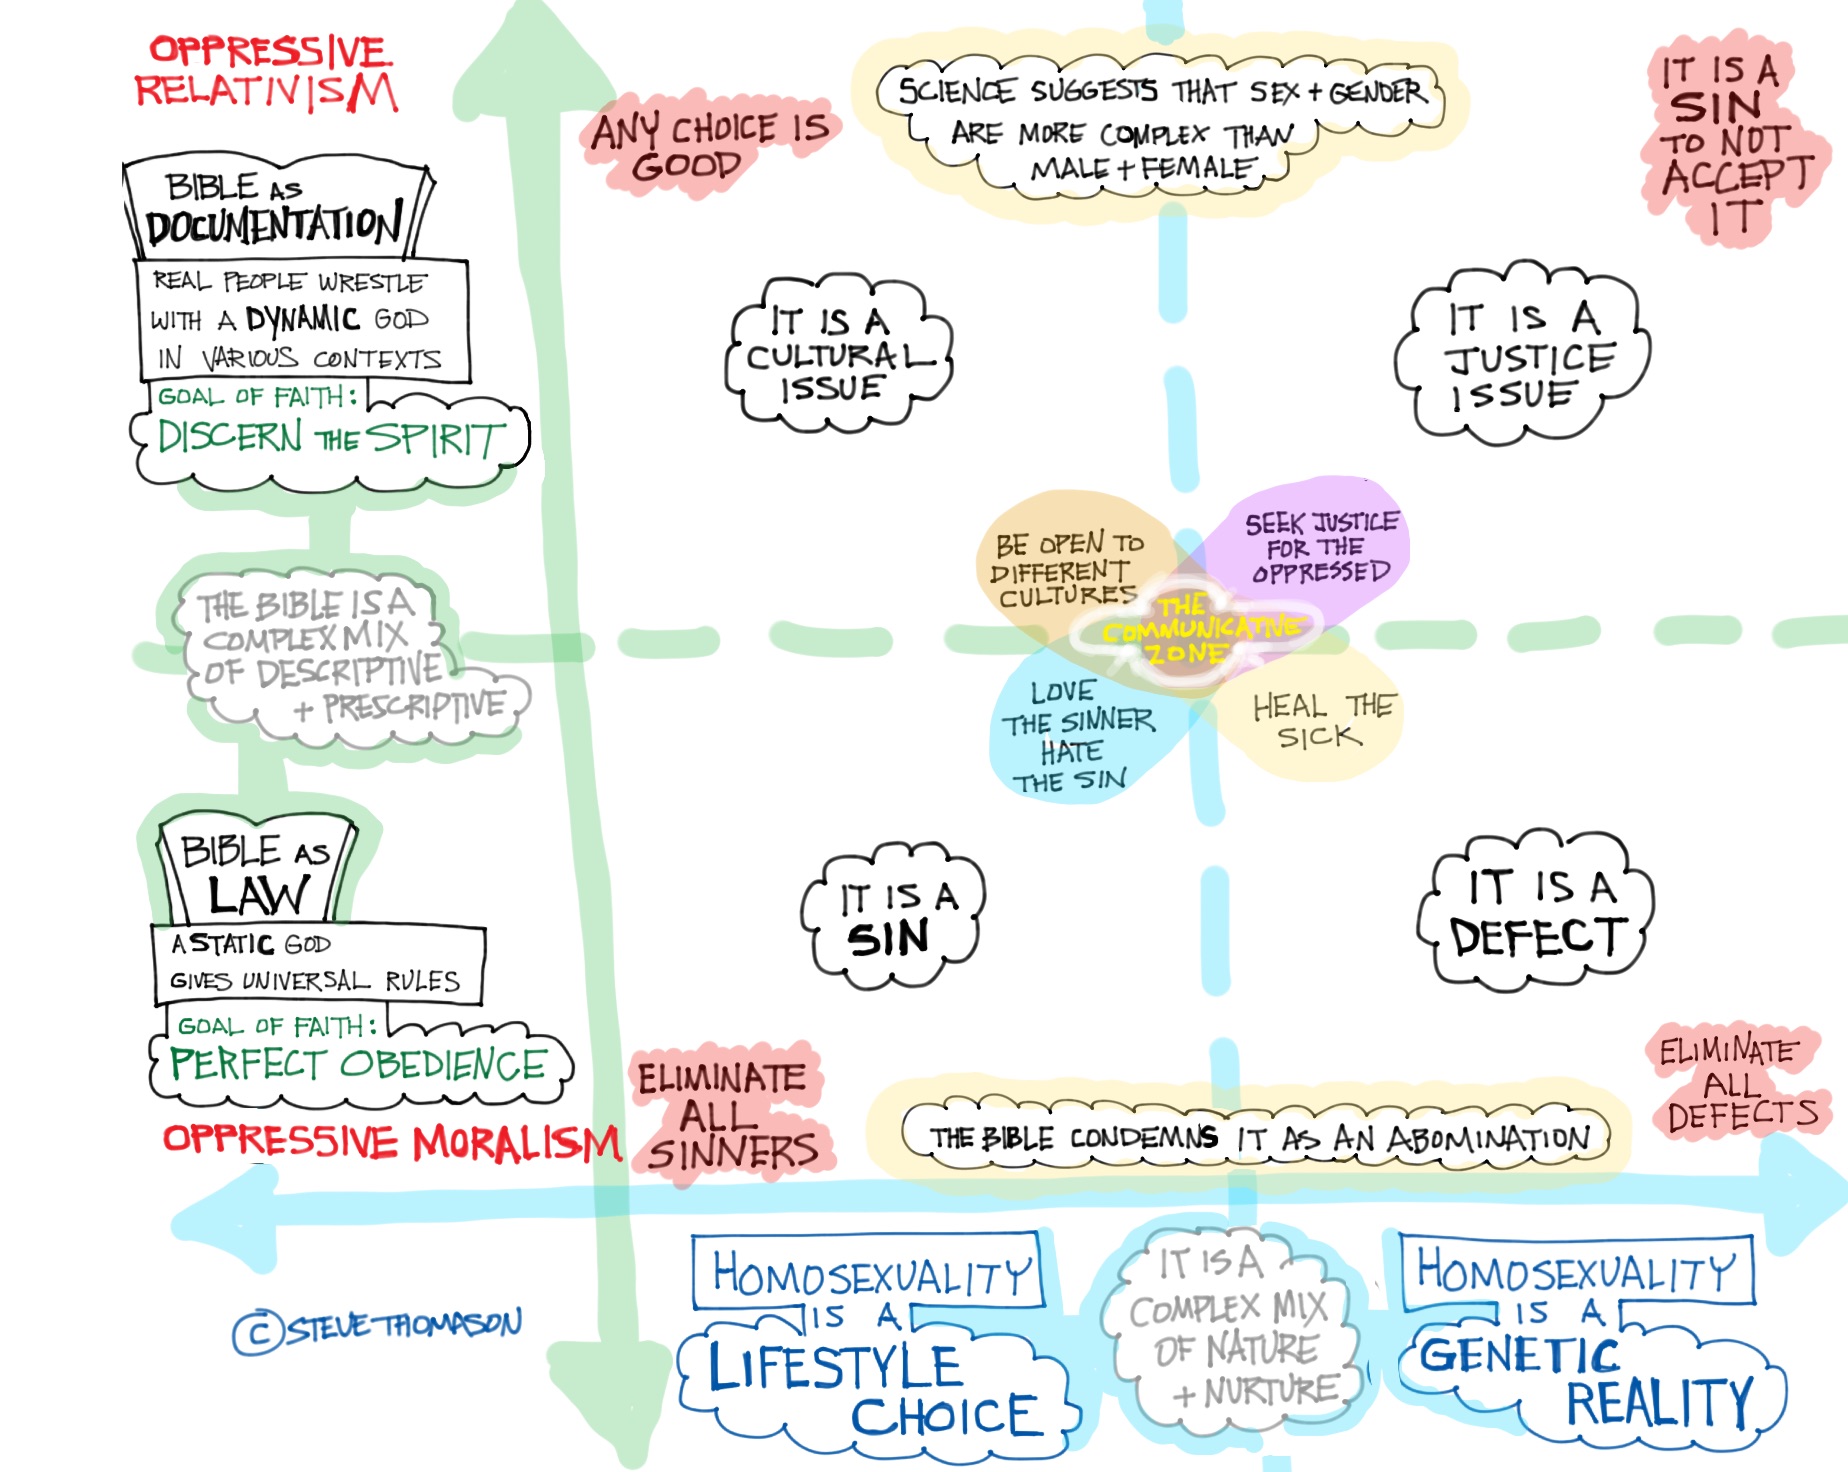 OPPRESSIVE
RELATIVISM
BIBLE AS
DOCUMENTATION
REAL PEOPLE WRESTLE
WITH A DYNAMIC GOD
IN VARIOUS CONTEXTS
GOAL OF FAITH:
DISCERN THE SPIRIT
THE BIBLE IS A
COMPLEX MIX
OF DESCRIPTIVE
+ PRESCRIPTIVE
BIBLE AS
LAW
A STATIC GOD
GIVES UNIVERSAL RULES
GOAL OF FAITH:
PERFECT OBEDIENCE
OPPRESSIVE MORALISM
ANY CHOICE IS
GOOD
SCIENCE SUGGESTS THAT SEX + GENDER
ARE MORE COMPLEX THAN
MALE + FEMALE
IT IS A
SIN
TO NOT
ACCEPT
IT
IT IS A
CULTURAL
ISSUE
IT IS A
JUSTICE
ISSUE
BE OPEN TO
DIFFERENT
CULTURES
SEEK JUSTICE
FOR THE
OPPRESSED
THE
COMMUNICATIVE
ZONE
LOVE
THE SINNER
HATE
THE SIN
HEAL THE
SICK
IT IS A
SIN
IT IS A
DEFECT
ELIMINATE
ALL
SINNERS
THE BIBLE CONDEMNS IT AS AN ABOMINATION
ELIMINATE
ALL
DEFECTS
HOMOSEXUALITY
IS A
LIFESTYLE
CHOICE
IT IS A
COMPLEX MIX
OF NATURE
+ NURTURE
HOMOSEXUALITY
IS A
GENETIC
REALITY
© STEVE THOMASON